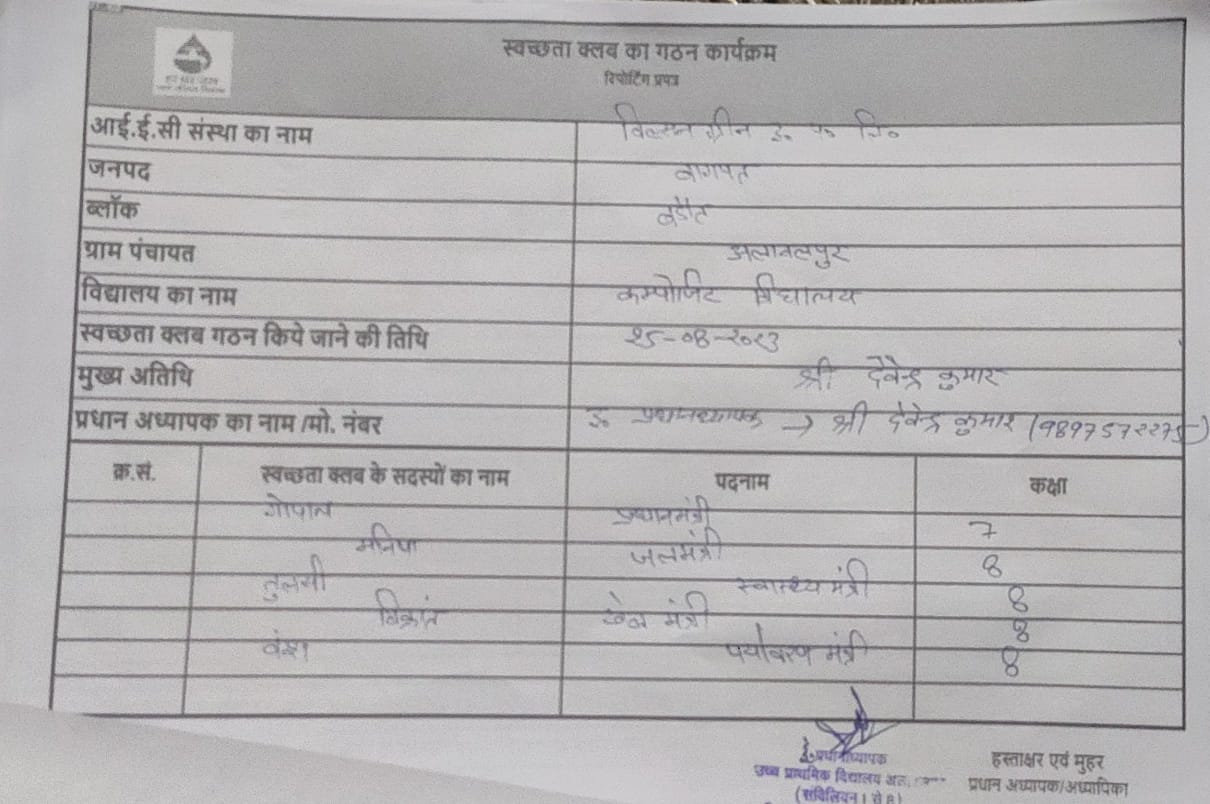 स्वच्छता क्लब का गठन कार्यक्रम
रिपोर्टिंग प्रपत्र
आई.ई.सी संस्था का नाम ग्रीन इ० प० लि०
जनपद बागपत
ब्लॉक बडौत
ग्राम पंचायत अलावलपुर
विद्यालय का नाम कम्पोजिट विद्यालय
स्वच्छता क्लब गठन किये जाने की तिथि २५-०8-२०२३
मुख्य अतिथि श्री देवेन्द्र कुमार
प्रधान अध्यापक का नाम /मो. नंबर इ० प्रधानध्यापक → श्री देवेन्द्र कुमार
क्र.सं. स्वच्छता क्लब के सदस्यों का नाम पदनाम कक्षा
गोपाल प्रधानमंत्री 7
मनिषा जलमंत्री 8
तुलसी स्वास्थ्य मंत्री 8
विक्रांत खेल मंत्री 8
वंश पर्यावरण मंत्री 8
इ. प्रधानाध्यापक
उच्च प्राथमिक विद्यालय
(संविलियन 1 से 8)
हस्ताक्षर एवं मुहर
प्रधान अध्यापक/अध्यापिका